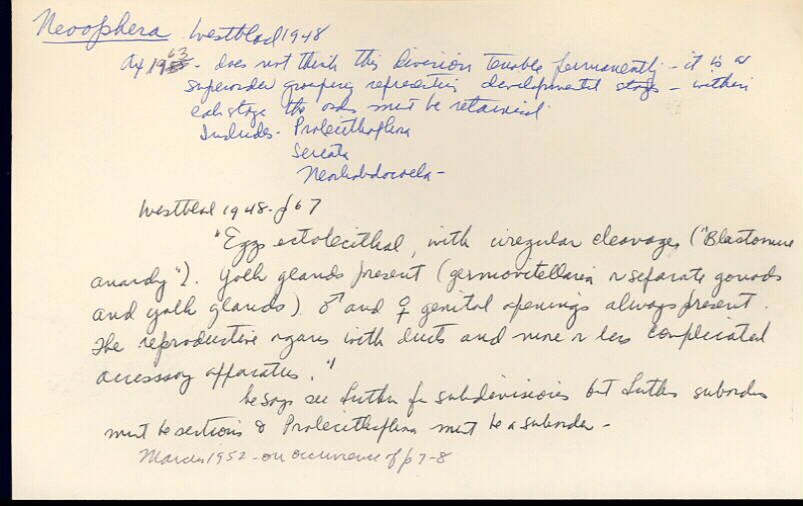 Neoophera Westblad 1948
Ax 1963 - does not think this division tenable permanently - it is a
superorder grouping representing developmental stage - within
each stage the ords must be retained
Includes - Prolecithophora
Seriata
Neorhabdocoela -
Westblad 1948 - p 67
"Eggs ectolecithal, with irregular cleavage, ("Blastomere
anarchy"). Yolk glands present (germovitellaria or separate gonads
and yolk glands). ♂ and ♀ genital openings always present.
The reproductive organs with ducts and more or less complicated
accessory apparatus."
he says see Luther for subdivisions but Luther suborders
must be sections & Prolecithophora must be a suborder -
Marcus 1952 - on occurrence of p 7-8